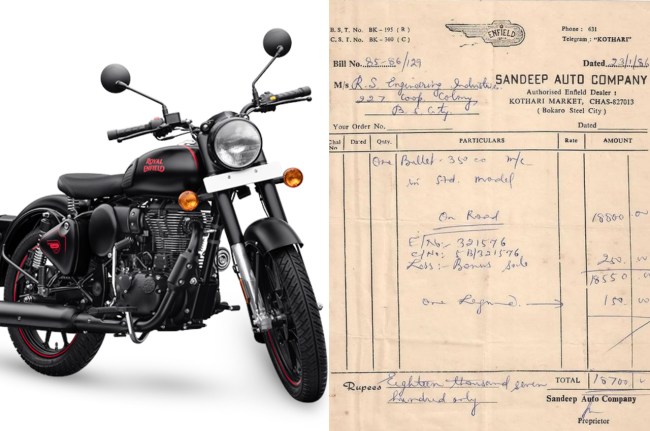 ROYAL
ENFIELD
B.S.T. No. BK-195 ( R )
C.S.T. No. BK-360 ( C )
ENFIELD
Phone : 631
Telegram : "KOTHARI"
Bill No. 85-86/129
Dated 23/1/86
M/s R.S. Engineering Industries
227 Coop. Colony
B. S. City
SANDEEP AUTO COMPANY
Authorised Enfield Dealer :
KOTHARI MARKET, CHAS-827013
( Bokaro Steel City )
Your Order No.
Dated
No
Dated
Qnty.
PARTICULARS
Rate
AMOUNT
One Bullet - 350 cc m/c
in Std. model
On Road
18800
E/No:- 321576
C/No: 5B/321576
Less:- Bonus
250
18550
One
150
Rupees Eighteen thousand seven
hundred only
TOTAL
18700
Sandeep Auto Company
Proprietor